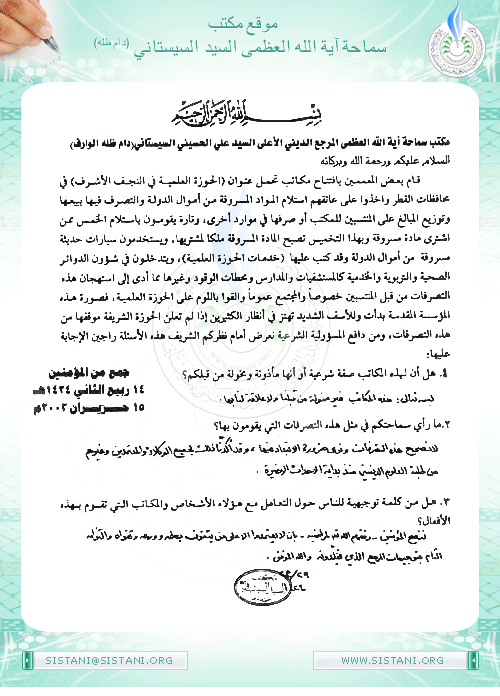 موقع مكتب
سماحة آية الله العظمى السيد السيستاني (دام ظله)
بسم الله الرحمن الرحيم
مكتب سماحة آية الله العظمى المرجع الديني الأعلى السيد علي الحسيني السيستاني(دام ظله الوارف)
السلام عليكم ورحمة الله وبركاته
قام بعض المعممين بافتتاح مكاتب تحمل عنوان (الحوزة العلمية في النجف الأشرف) في
محافظات القطر واخذوا على عاتقهم استلام المواد المسروقة من أموال الدولة والتصرف فيها ببيعها
وتوزيع المبالغ على المنتسبين للمكتب أو صرفها في موارد أخرى، وتارة يقومون باستلام الخمس ممن
اشترى مادة مسروقة وبهذا التخميس تصبح المادة المسروقة ملكا لمشتريها، ويستخدمون سيارات حديثة
مسروقة من أموال الدولة وقد كتب عليها (خدمات الحوزة العلمية)، ويتدخلون في شؤون الدوائر
الصحية والتربوية والخدمية كالمستشفيات والمدارس ومحطات الوقود وغيرها مما أدى إلى استهجان هذه
التصرفات من قبل المنتسبين خصوصاً والمجتمع عموماً والقوا باللوم على الحوزة العلمية، فصورة هذه
المؤسسة المقدسة بدأت وللأسف الشديد تهتز في أنظار الكثيرين إذا لم تعلن الحوزة الشريفة موقفها من
هذه التصرفات، ومن دافع المسؤولية الشرعية نعرض أمام نظركم الشريف هذه الأسئلة راجين الإجابة
عليها:
جمع من المؤمنين
١٤ ربيع الثاني ١٤٢٤هـ
١٥ حزيران ٢٠٠٣م
١. هل أن لهذه المكاتب صفة شرعية أو أنها مأذونة ومخولة من قبلكم؟
بسمه تعالى: هذه المكاتب غير مخولة من قبلنا ولا علاقة لنا بها.
٢.ما رأي سماحتكم في مثل هذه التصرفات التي يقومون بها؟
لا تصح هذه التصرفات ونرى ضرورة الابتعاد عنها، وقد أكدنا ذلك لجميع الوكلاء والمعتمدين وغيرهم
من طلبة العلوم الدينية منذ بداية الأحداث الأخيرة.
٣. هل من كلمة توجيهية للناس حول التعامل مع هؤلاء الأشخاص والمكاتب التي تقوم بهذه
الأفعال؟
ننصح المؤمنين - وفقهم الله لمراضيه - بأن لا يعتمدوا إلا على من يتثقون بعلمه وورعه وتقواه والتزامه
التام بتوجيهات المرجع الذي يقلدونه والله الموفق.
SISTANI@SISTANI.ORG
WWW.SISTANI.ORG